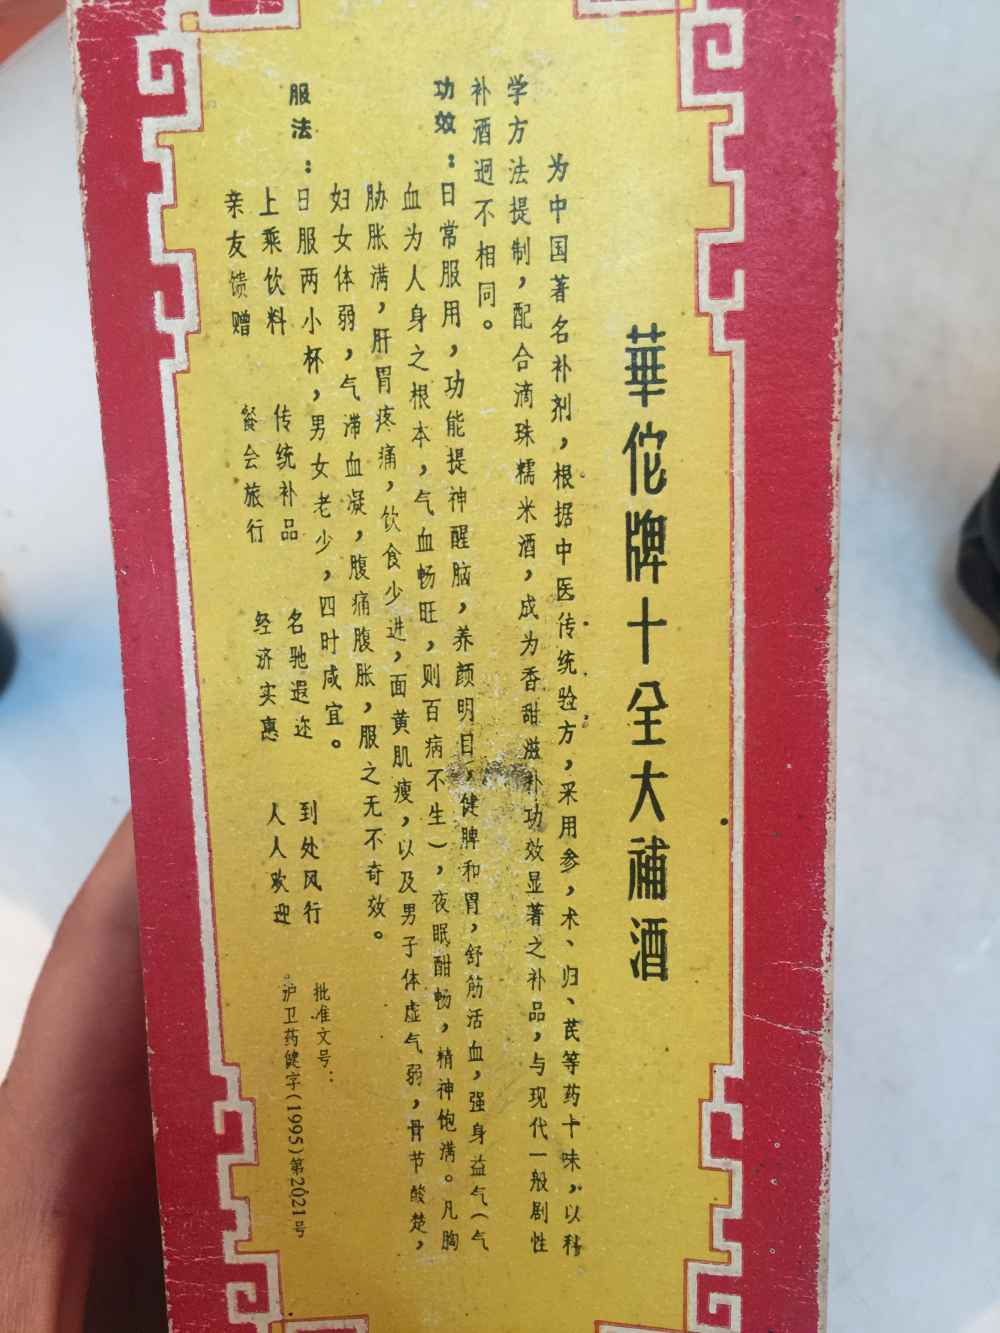 華佗牌十全大補酒
为中国著名补剂，根据中医传统验方，采用参，术、归、芪等药十味，以科
学方法提制，配合滴珠糯米酒，成为香甜滋补功效显著之补品，与现代一般剧性
补酒迥不相同。
功效：日常服用，功能提神醒脑，养颜明目，健脾和胃，舒筋活血，强身益气（气
血为人身之根本，气血畅旺，则百病不生），夜眠酣畅，精神饱满。凡胸
胁胀满，肝胃疼痛，饮食少进，面黄肌瘦，以及男子体虚气弱，骨节酸楚，
妇女体弱，气滞血凝，腹痛腹胀，服之无不奇效。
服法：日服两小杯，男女老少，四时咸宜。
上乘饮料 传统补品 名驰遐迩 到处风行
亲友馈赠 餐会旅行 经济实惠 人人欢迎
批准文号：
沪卫药健字(1995)第2021号